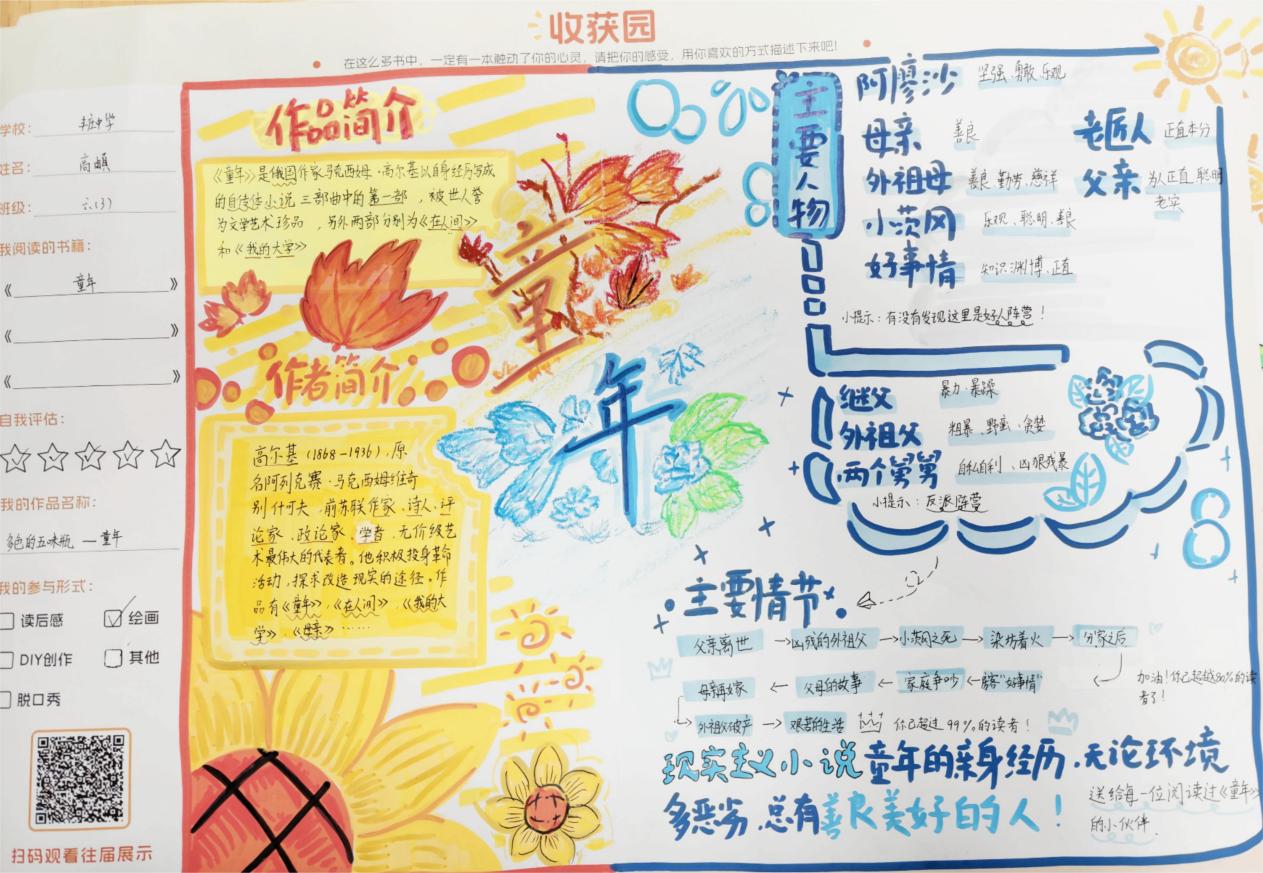 收获园
在这么多书中，一定有一本触动了你的心灵，请把你的感受，用你喜欢的方式描述下来吧!
学校:
姓名: 高
班级: 六(3)
我阅读的书籍:
《 童年 》
《 》
《 》
自我评估:
我的作品名称:
多色的五味瓶 —童年
我的参与形式:
读后感 绘画
DIY创作 其他
脱口秀
扫码观看往届展示
作品简介
《童年》是俄国作家马克西姆·高尔基以自身经历写成
的自传体小说三部曲中的第一部，被世人誉
为文学艺术珍品，另外两部分别为《在人间》
和《我的大学》
作者简介
高尔基(1868-1936)，原
名阿列克赛·马克西姆维奇
别什可夫，前苏联作家、诗人、评
论家、政论家、学者，无价级艺
术最伟大的代表者。他积极投身革命
活动，探求改造现实的途径。作
品有《童年》、《在人间》、《我的大
学》、《母亲》……
童年
主要人物
阿廖沙 坚强、勇敢、乐观
母亲 善良
老匠人 正直本分
外祖母 善良、勤劳、慈祥
父亲 为人正直、聪明
老实
小茨冈 乐观、聪明、善良
好事情 知识渊博、正直
小提示：有没有发现这里是好人阵营！
继父 暴力、暴躁
外祖父 粗暴、野蛮、贪婪
两个舅舅 自私自利、凶狠残暴
小提示：反派阵营
主要情节
父亲离世 →凶残的外祖父 →小茨冈之死 →染坊着火 → 分家之后
母亲再嫁 ← 父母的故事 ← 家庭争吵 ← 房客"好事情" ← 加油！你已超越80%的读
者了！
外祖父破产 → 艰苦的生活 你已超过99%的读者！
现实主义小说童年的亲身经历.无论环境
多恶劣.总有善良美好的人！
送给每一位阅读过《童年》
的小伙伴.